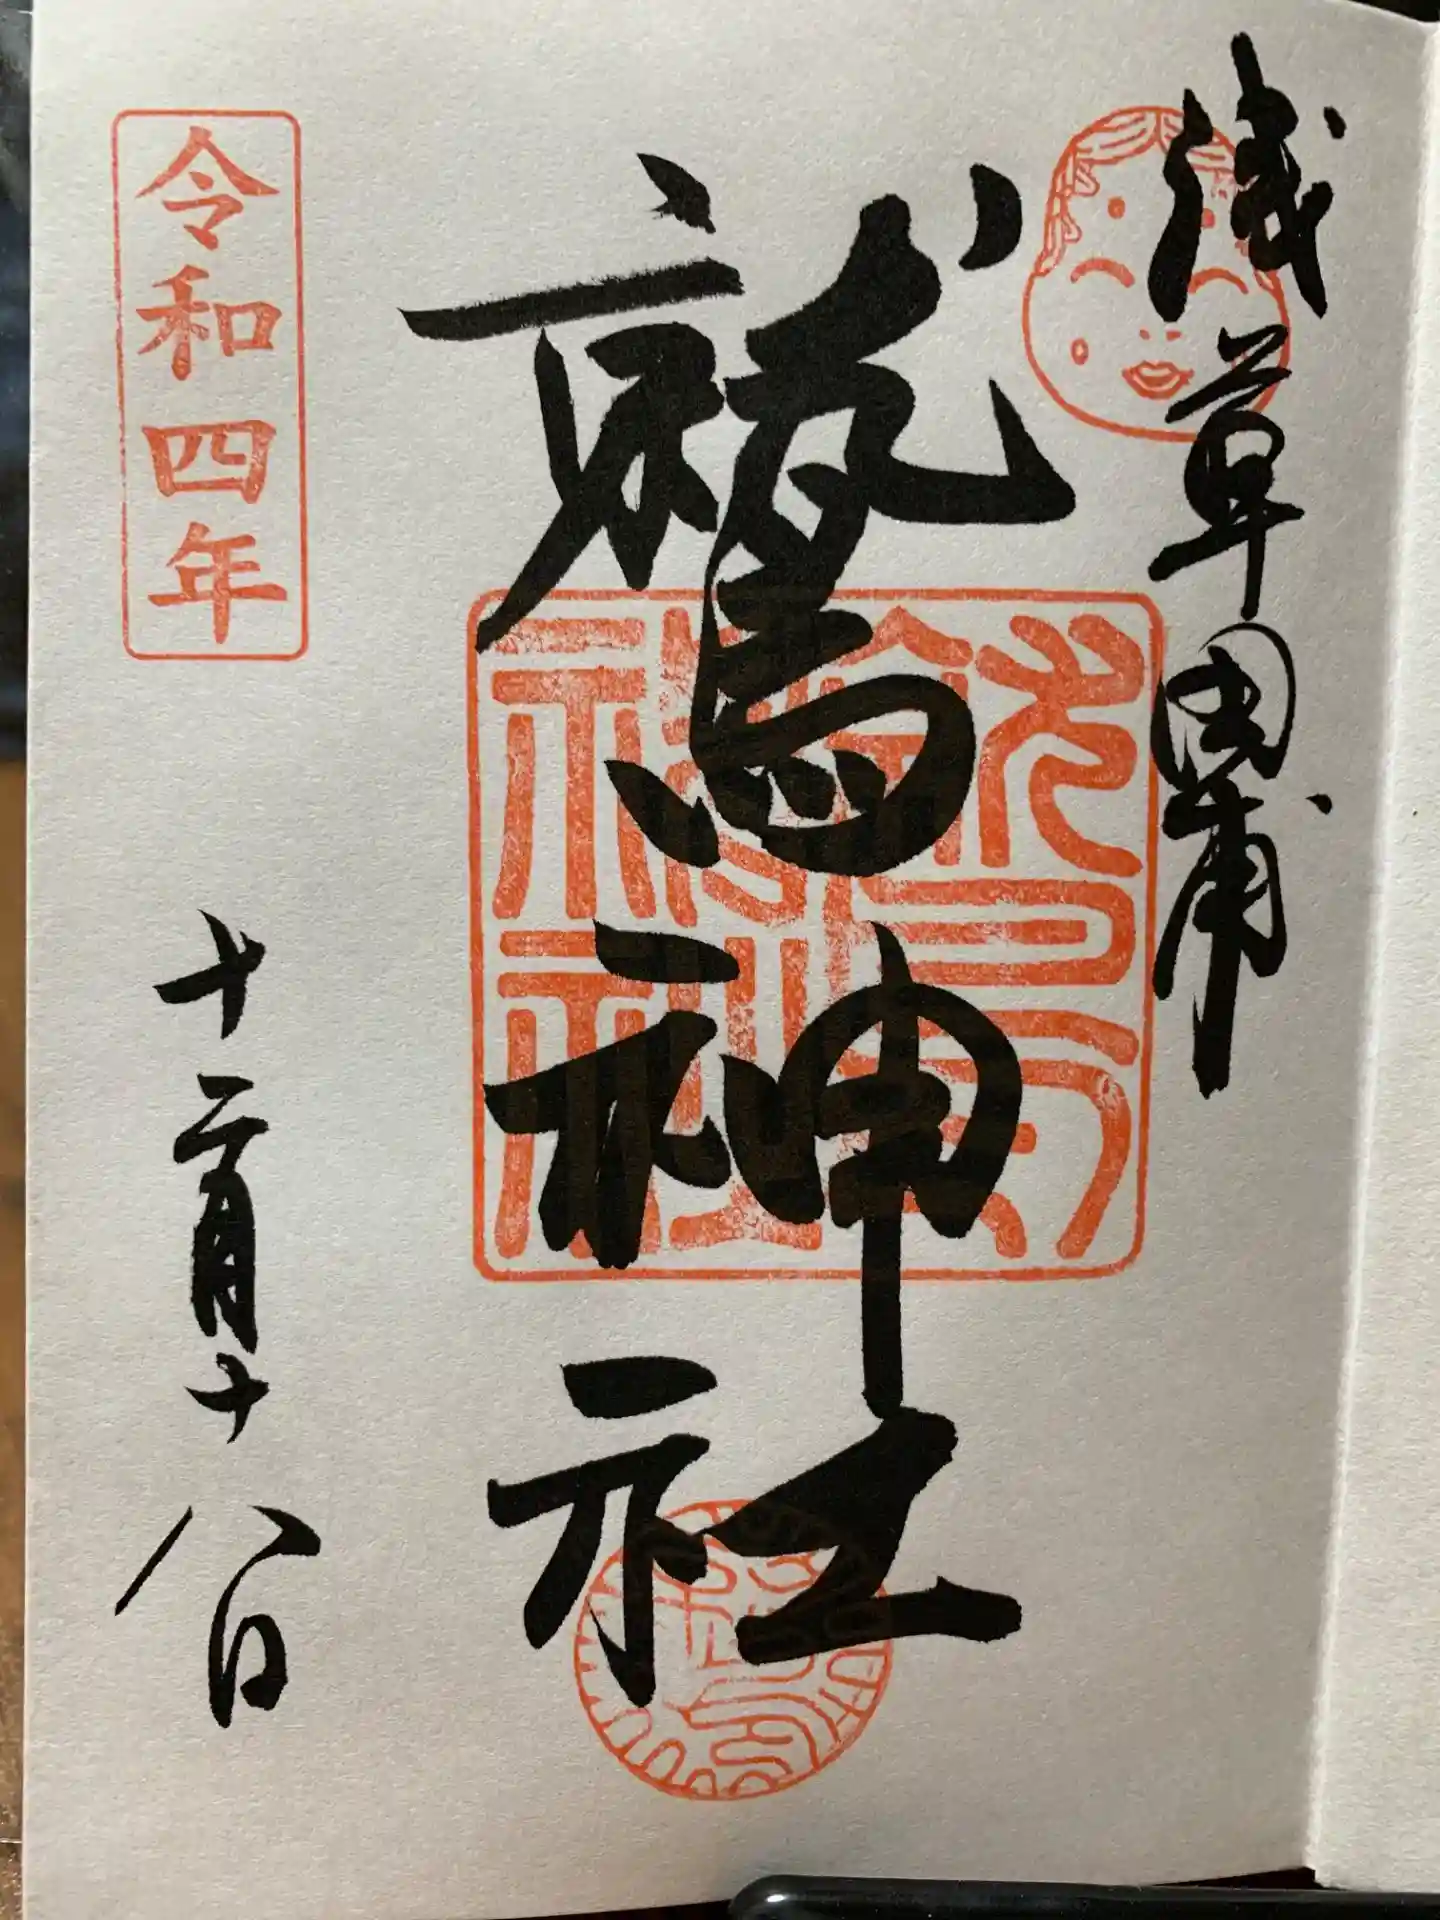 浅草田甫
鷲神社
鷲神社
令和四年
十二月十八日